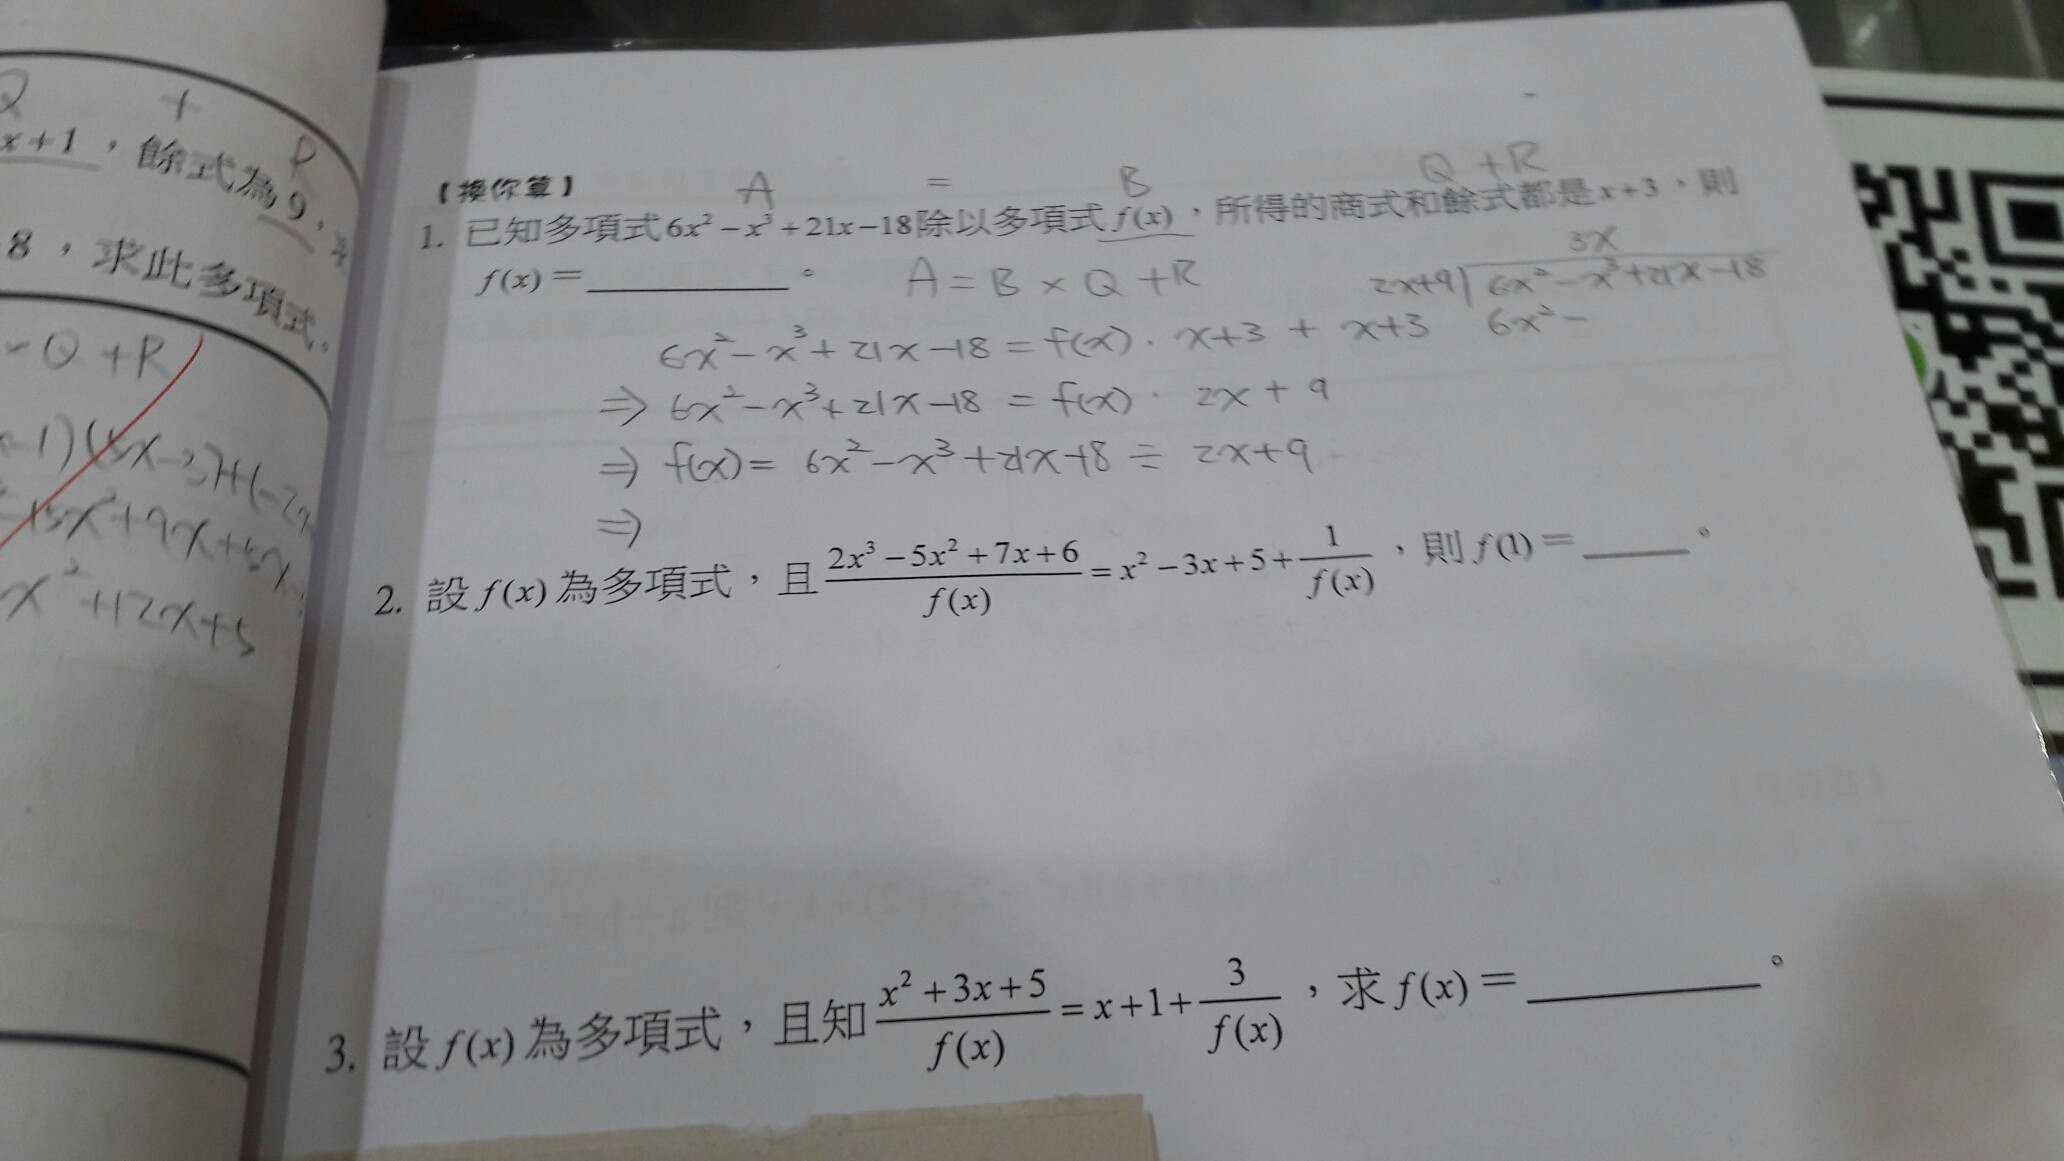 Q + R
x+1，餘式為9，
8，求此多項式。
Q+R
-1)(5x-3)+(-2x
15x²+9x+5x
x²+12x+5
【換你算】
A = B Q+R
1. 已知多項式6x²-x³+21x-18除以多項式f(x)，所得的商式和餘式都是x+3，則
f(x)=________。
A=B×Q+R
3x
2x+9)6x²-x³+21x-18
6x²-
6x²-x³+21x-18=f(x)·x+3+x+3
⇒ 6x²-x³+21x-18=f(x)·2x+9
⇒ f(x)=6x²-x³+21x+8÷2x+9
⇒
2. 設f(x)為多項式，且(2x³-5x²+7x+6)/f(x)=x²-3x+5+1/f(x)，則f(1)=____。
3. 設f(x)為多項式，且知(x²+3x+5)/f(x)=x+1+3/f(x)，求f(x)=________。